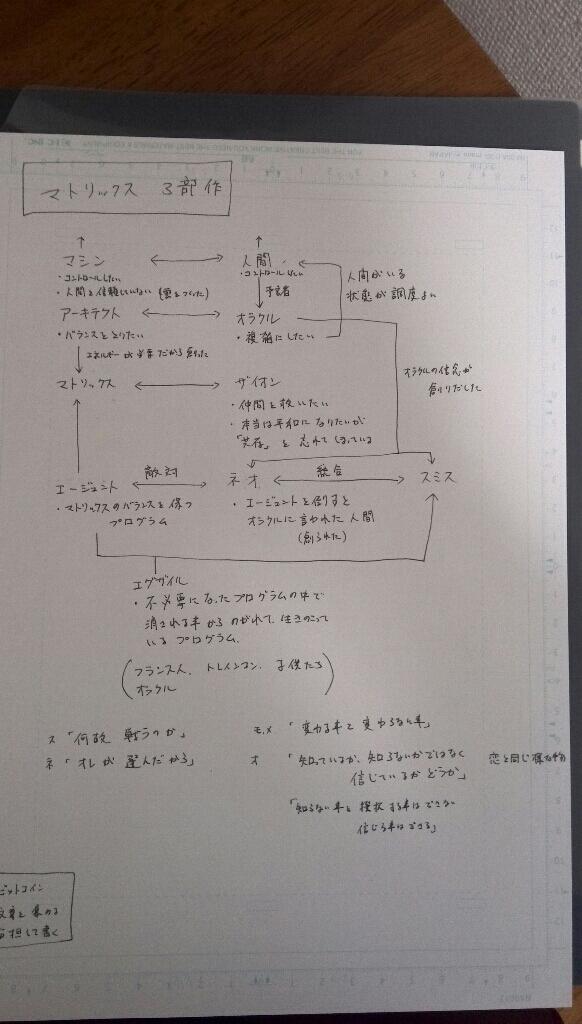 マトリックス 3部作
マシン
人間
・コントロールしたい
・コントロールしたい
・人間を信頼していない
予言者
人間がいる
状態が調度よい
アーキテクト
オラクル
・バランスをとりたい
・複雑にしたい
エネルギーが必要だから創った
オラクルの信念が
創りだした
マトリックス
ザイオン
・仲間を救いたい
・本当は平和になりたいが
「共存」を忘れてしまっている
敵対
統合
エージェント
ネオ
スミス
・マトリックスのバランスを保つ
プログラム
・エージェントを倒すと
オラクルに言われた人間
(創られた)
エグザイル
・不必要になったプログラムの中で
消される事からのがれて、生きのこって
いるプログラム.
(フランス人、トレインマン、子供たち
オラクル)
ス「何故 戦うのか」
ネ「オレが選んだから」
モ.メ「変わる事と変わらない事」
オ「知っているか、知らないかではなく
信じているかどうか」
恋と同じ様な物
「知らない事を選択する事はできない
信じる事はできる」
ビットコイン
文章を集める
分担して書く